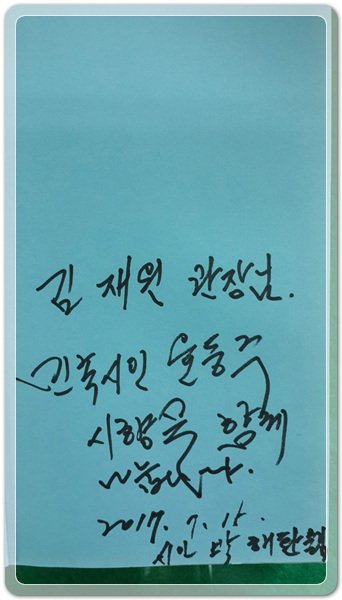 김 재원 관장님.
민족시인 윤동주
시향을 함께
나눕니다.
2017. 7. 15.
시인 박 해환